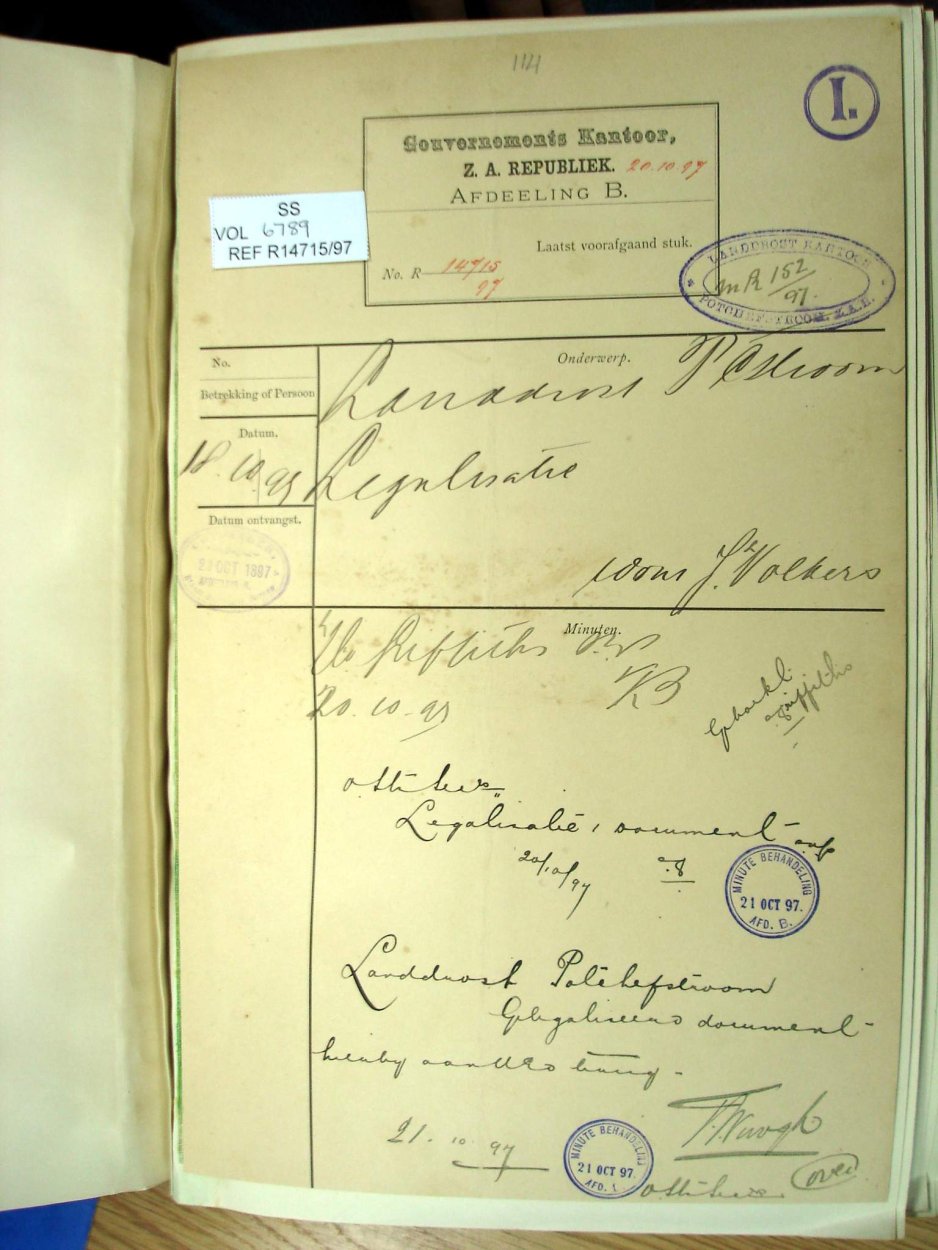 1141
I.
Gouvernements Kantoor,
Z. A. REPUBLIEK. 20.10.97
AFDEELING B.
Laatst voorafgaand stuk.
No. R 14715
97
SS
VOL 6789
REF R14715/97
LANDDROST KANTOOR
R 152
/97.
POTCHEFSTROOM, Z.A.R.
No.
Betrekking of Persoon
Onderwerp.
Landdrost P'stroom
Datum.
18.10.97
Legalisatie
Datum ontvangst.
20 OCT 1897
J. Volkers
Minuten.
Griffiths
20.10.97
Griffiths
Legalisatie document
20/10/97
MINUTE BEHANDELING
21 OCT 97.
AFD. B.
Landdrost Potchefstroom
Gelegaliseerd document
hierby terug -
21.10.97
MINUTE BEHANDELING
21 OCT 97.
AFD. 
over